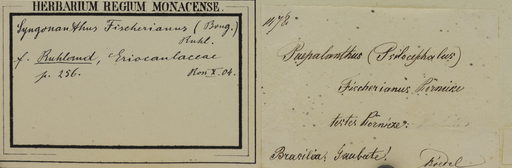 HERBARIUM REGIUM MONACENSE.
Syngonanthus Fischerianus (Bong.)
Ruhl.
f. Ruhland, Eriocaulaceae
p. 256. X. 04.
1178.
Paepalanthus (Psilocephalus)
Fischerianus Körnicke
teste Körnicke.
Brasilia,
Riedel